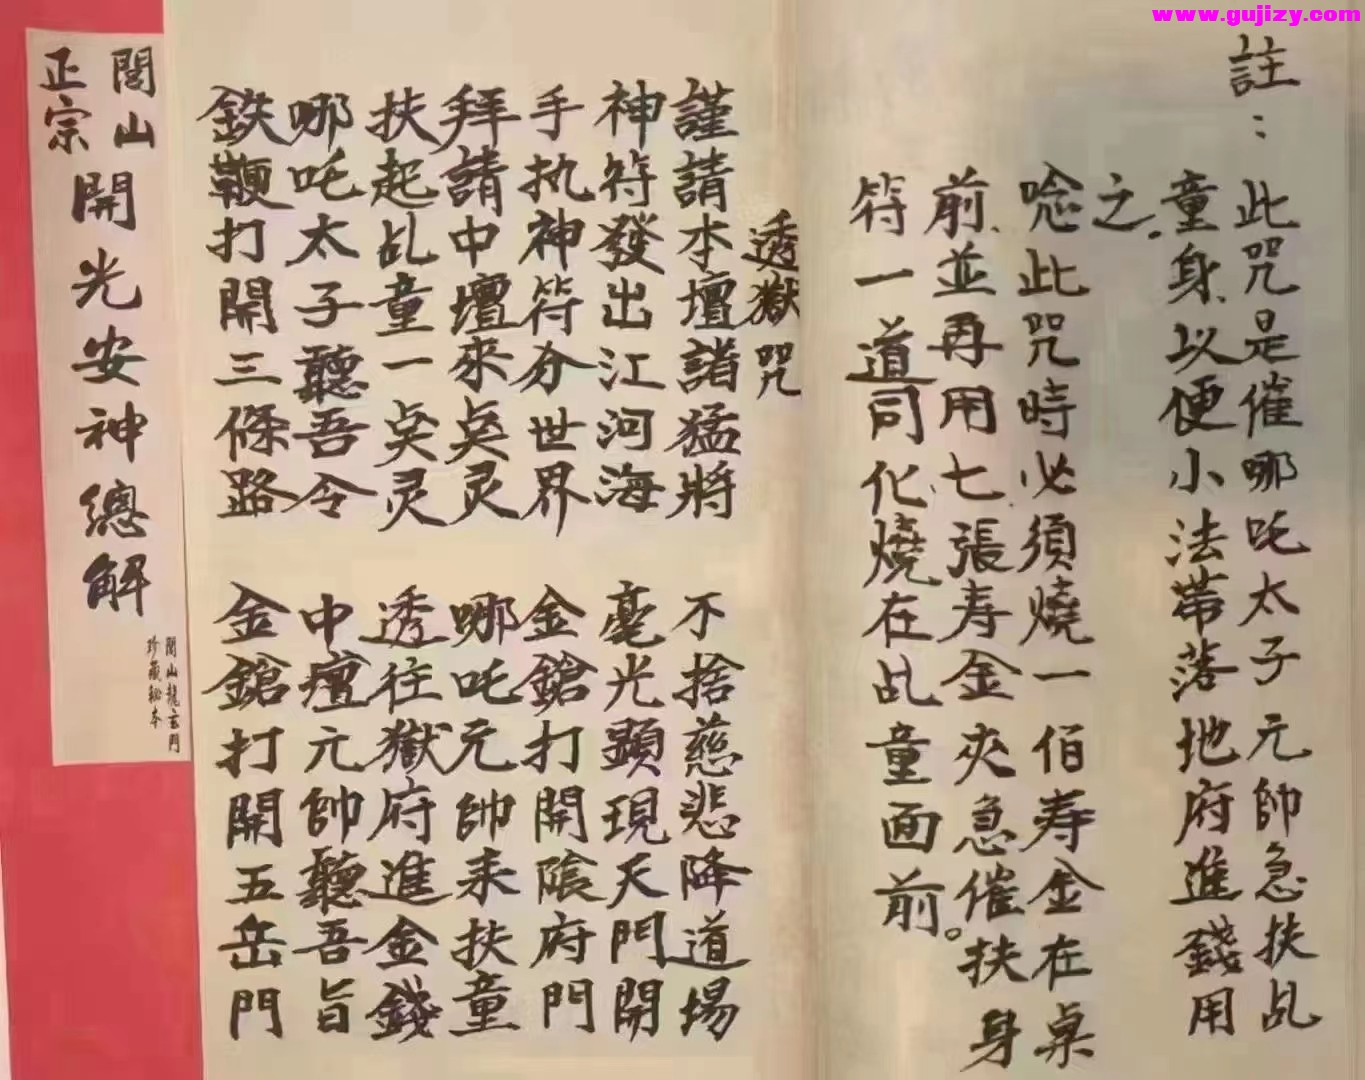 www.gujizy.com
註：
此咒是催哪吒太子元帥急扶乩
童身、以便小法帶落地府進錢用
之。
唸此咒時必須燒一佰寿金在桌
前、並再用七張寿金夾急催扶身
符一道同化燒在乩童面前。
透獄咒
謹請本壇諸猛將 不捨慈悲降道場
神符發出江河海 毫光顕現天門開
手执神符分世界 金鎗打開陰府門
拜請中壇來奌灵 哪吒元帥来扶童
扶起乩童一奌灵 透往獄府進金錢
哪吒太子聽吾令 中壇元帥聽吾旨
鉄鞭打開三條路 金鎗打開五岳門
閭山
正宗
開光安神總解
閭山龍玄門
珍藏秘本